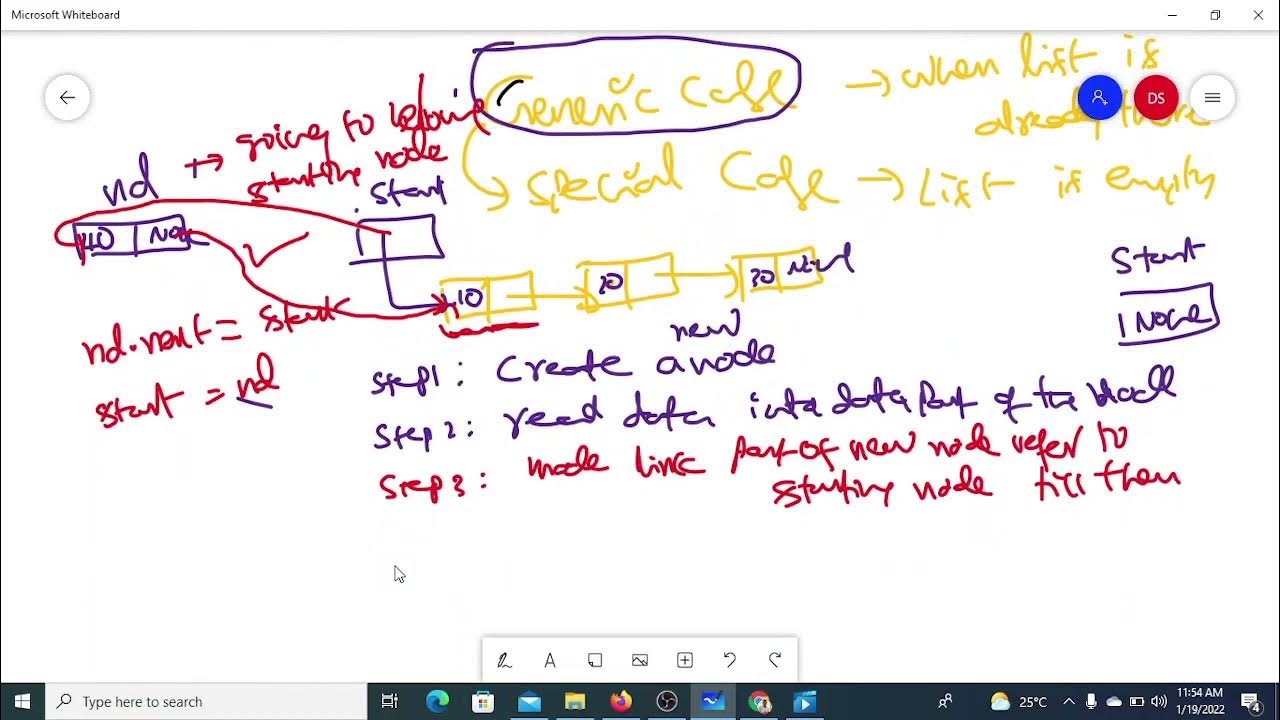 Microsoft Whiteboard
Generic Case → when list is
already there
DS
nd → going to before
starting node
Special Case → List is empty
start
40
10
20
30
Start
None
nd.next = start
start = nd
new
Step1: Create a node
Step2: read data into data part of the node
Step3: made link part of new node refer to
starting node till then
A
Type here to search
25°C
11:54 AM
1/19/2022
4